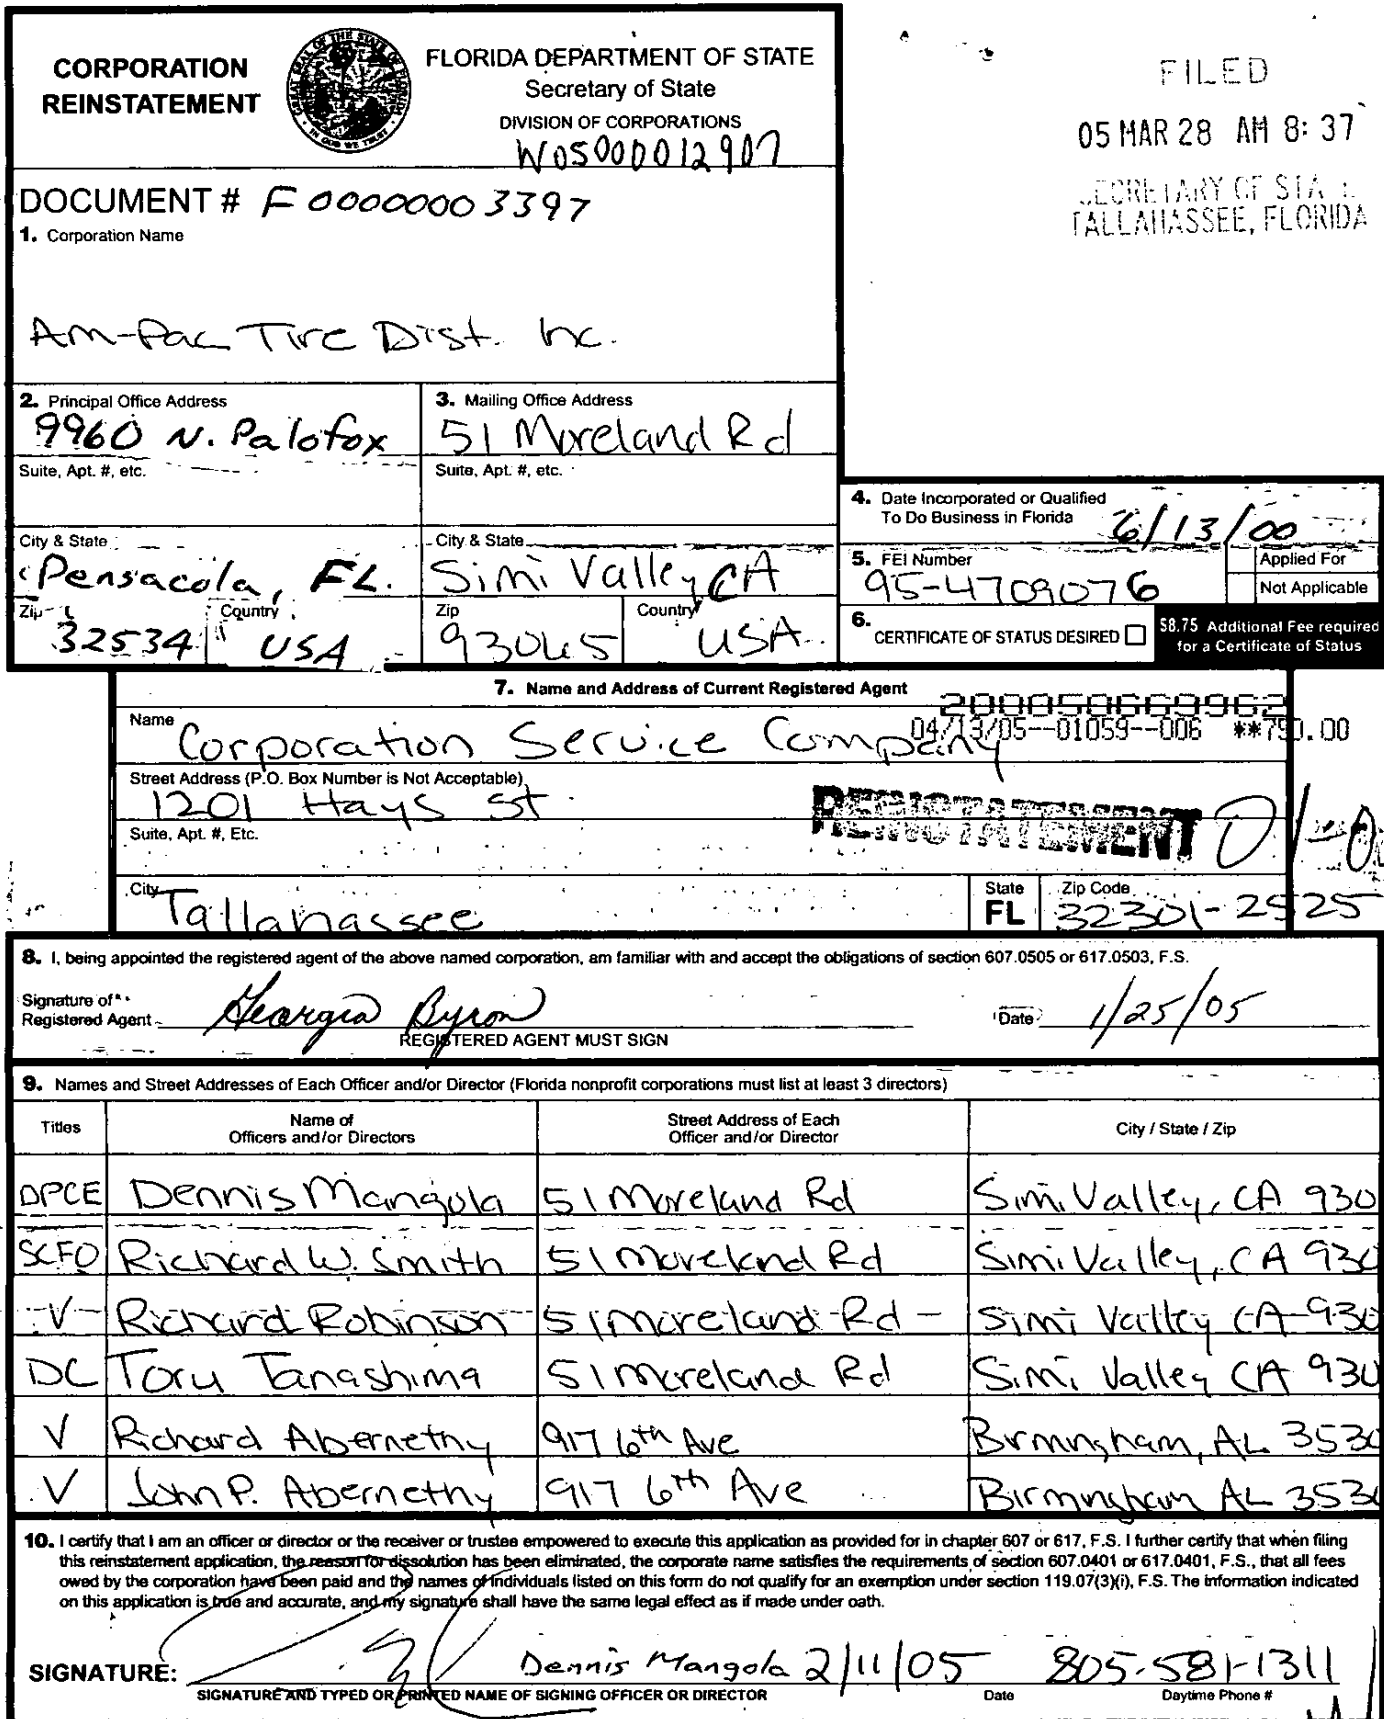 CORPORATION
REINSTATEMENT
FLORIDA DEPARTMENT OF STATE
Secretary of State
DIVISION OF CORPORATIONS
W05000012907
FILED
05 MAR 28 AM 8:37
SECRETARY OF STATE
TALLAHASSEE, FLORIDA
DOCUMENT # F00000003397
1. Corporation Name
Am-Pac Tire Dist. Inc.
2. Principal Office Address
9960 N. Palofox
3. Mailing Office Address
51 Moreland Rd
Suite, Apt. #, etc.
Suite, Apt. #, etc.
City & State
Pensacola, FL.
City & State
Simi Valley CA
Zip
32534
Country
USA
Zip
93065
Country
USA
4. Date Incorporated or Qualified
To Do Business in Florida
6/13/00
5. FEI Number
95-4709076
Applied For
Not Applicable
6.
CERTIFICATE OF STATUS DESIRED
$8.75 Additional Fee required
for a Certificate of Status
7. Name and Address of Current Registered Agent
200050669962
04/13/05--01059--006 **750.00
Name
Corporation Service Company
Street Address (P.O. Box Number is Not Acceptable)
1201 Hays St
REINSTATEMENT
Suite, Apt. #, Etc.
City
Tallahassee
State
FL
Zip Code
32301-2525
8. I, being appointed the registered agent of the above named corporation, am familiar with and accept the obligations of section 607.0505 or 617.0503, F.S.
Signature of
Registered Agent
Georgia Byron
REGISTERED AGENT MUST SIGN
Date
1/25/05
9. Names and Street Addresses of Each Officer and/or Director (Florida nonprofit corporations must list at least 3 directors)
Titles
Name of
Officers and/or Directors
Street Address of Each
Officer and/or Director
City / State / Zip
DPCE Dennis Mangola 51 Moreland Rd Simi Valley, CA 930
SCFO Richard W. Smith 51 Moreland Rd Simi Valley, CA 930
V Richard Robinson 51 Moreland Rd Simi Valley CA 930
DC Toru Tanashima 51 Moreland Rd Simi Valley CA 930
V Richard Abernethy 917 6th Ave Birmingham, AL 3530
V John P. Abernethy 917 6th Ave Birmingham AL 353
10. I certify that I am an officer or director or the receiver or trustee empowered to execute this application as provided for in chapter 607 or 617, F.S. I further certify that when filing
this reinstatement application, the reason for dissolution has been eliminated, the corporate name satisfies the requirements of section 607.0401 or 617.0401, F.S., that all fees
owed by the corporation have been paid and the names of individuals listed on this form do not qualify for an exemption under section 119.07(3)(i), F.S. The information indicated
on this application is true and accurate, and my signature shall have the same legal effect as if made under oath.
SIGNATURE: Dennis Mangola 2/11/05 805-581-1311
SIGNATURE AND TYPED OR PRINTED NAME OF SIGNING OFFICER OR DIRECTOR
Date
Daytime Phone #